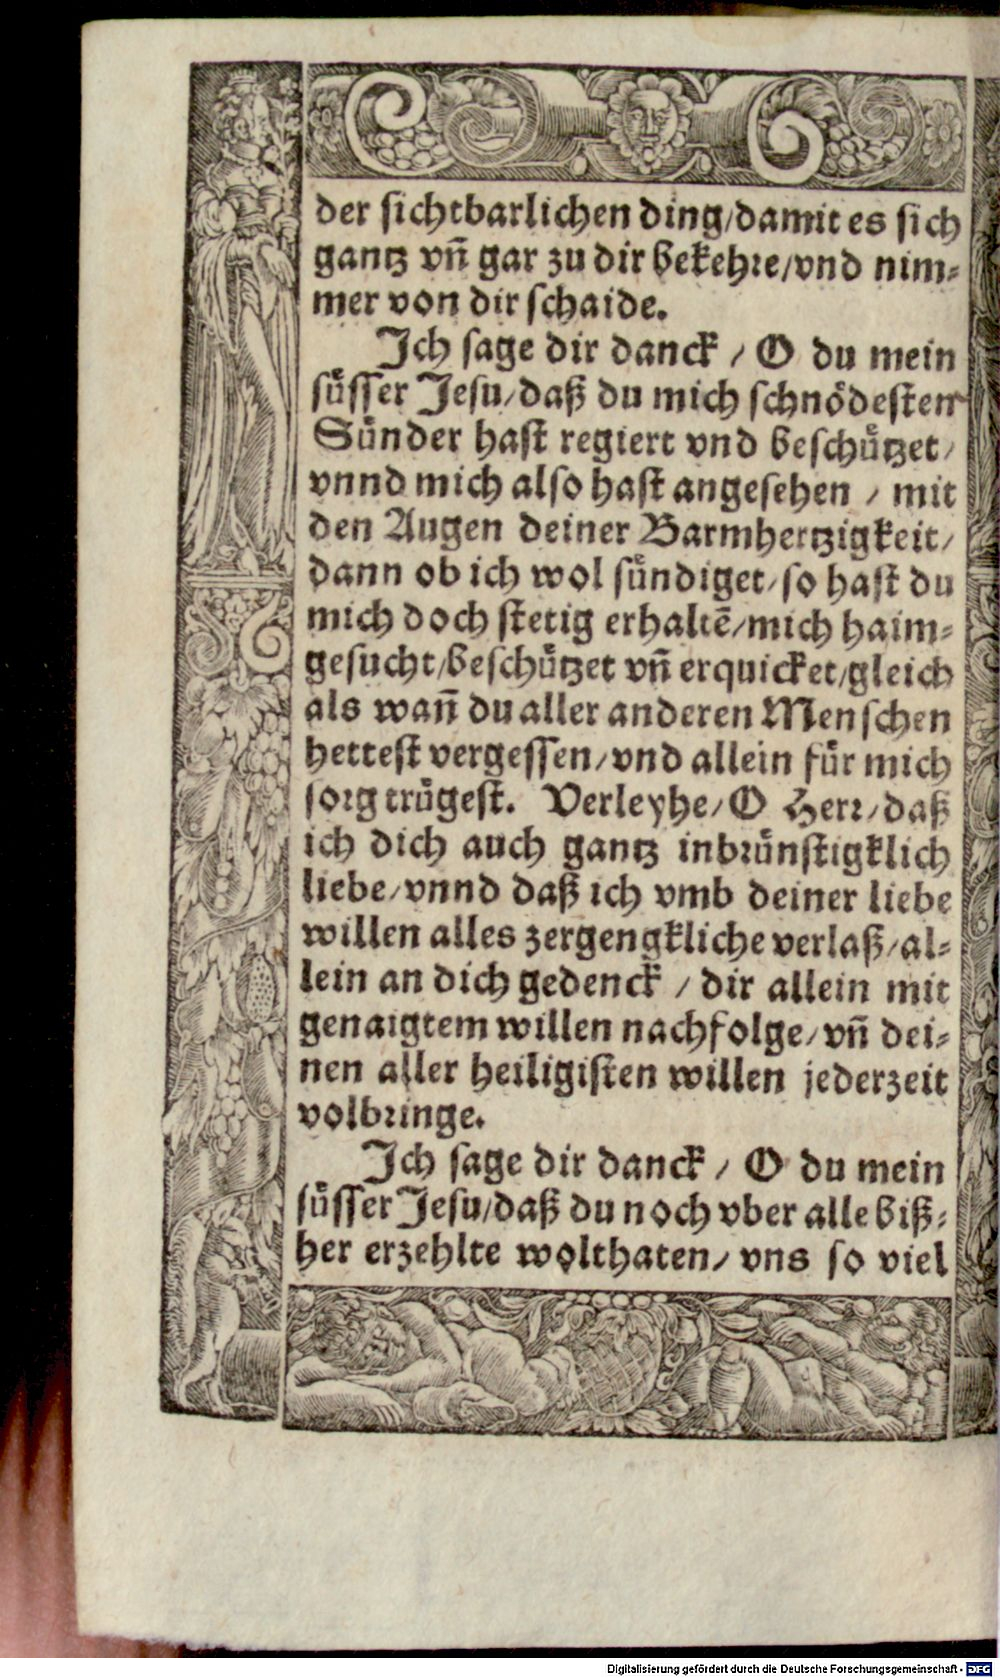 der sichtbarlichen ding/damit es sich
gantz vn̄ gar zu dir bekehre/vnd nim⸗
mer von dir schaide.
Ich sage dir danck / O du mein
suͤsser Jesu/daß du mich schnoͤdesten
Suͤnder hast regiert vnd beschuͤtzet/
vnnd mich also hast angesehen / mit
den Augen deiner Barmhertzigkeit/
dann ob ich wol suͤndiget/so hast du
mich doch stetig erhaltē/mich haim⸗
gesucht/beschuͤtzet vn̄ erquicket/gleich
als wan̄ du aller anderen Menschen
hettest vergessen/vnd allein fuͤr mich
sorg truͤgest. Verleyhe/O Herr/daß
ich dich auch gantz inbruͤnstigklich
liebe/vnnd daß ich vmb deiner liebe
willen alles zergengkliche verlaß/al⸗
lein an dich gedenck / dir allein mit
genaigtem willen nachfolge/vn̄ dei⸗
nen aller heiligisten willen jederzeit
volbringe.
Ich sage dir danck / O du mein
suͤsser Jesu/daß du noch vber alle biß⸗
her erzehlte wolthaten/vns so viel
Digitalisierung gefördert durch die Deutsche Forschungsgemeinschaft - DFG